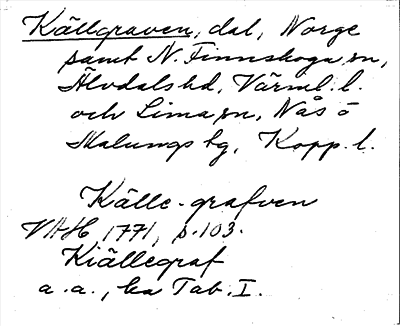 Källgraven, dal, Norge
samt N. Finnskoga sn,
Älvdals hd, Värml. l.
och Lima sn, Nås o
Malungs fg, Kopp. l.
Källe-grafven
VAH 1771, s. 103.
Kiällegraf
a. a., Tab. I.